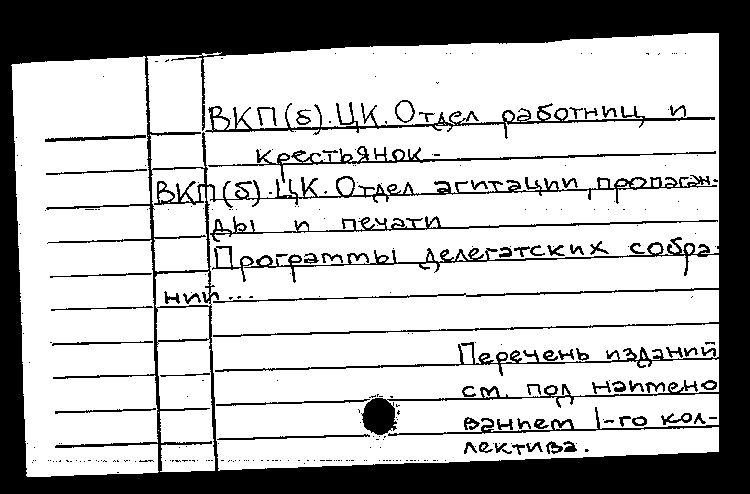 ВКП(б). ЦК. Отдел работниц и
крестьянок -
ВКП(б). ЦК. Отдел агитации, пропаган-
ды и печати
Программы делегатских собра-
ний...
Перечень изданий
см. под наимено
ванием 1-го кол-
лектива.